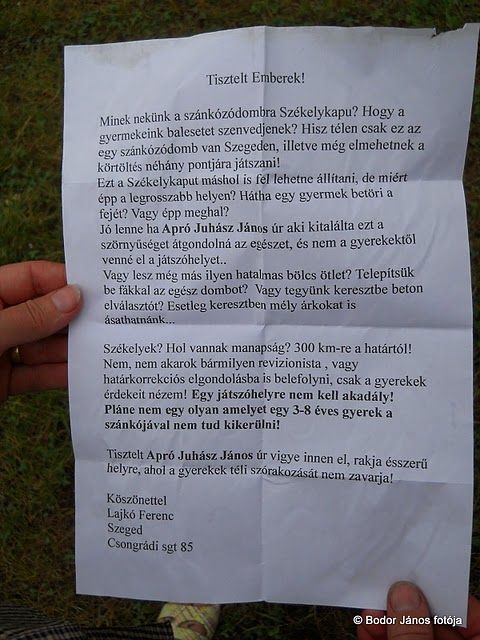 Tisztelt Emberek!
Minek nekünk a szánkózódombra Székelykapu? Hogy a
gyermekeink balesetet szenvedjenek? Hisz télen csak ez az
egy szánkózódomb van Szegeden, illetve még elmehetnek a
körtöltés néhány pontjára játszani!
Ezt a Székelykaput máshol is fel lehetne állítani, de miért
épp a legrosszabb helyen? Hátha egy gyermek betöri a
fejét? Vagy épp meghal?
Jó lenne ha Apró Juhász János úr aki kitalálta ezt a
szörnyűséget átgondolná az egészet, és nem a gyerekektől
venné el a játszóhelyet..
Vagy lesz még más ilyen hatalmas bölcs ötlet? Telepítsük
be fákkal az egész dombot? Vagy tegyünk keresztbe beton
elválasztót? Esetleg keresztben mély árkokat is
ásathatnánk...
Székelyek? Hol vannak manapság? 300 km-re a határtól!
Nem, nem akarok bármilyen revizionista , vagy
határkorrekciós elgondolásba is belefolyni, csak a gyerekek
érdekeit nézem! Egy játszóhelyre nem kell akadály!
Pláne nem egy olyan amelyet egy 3-8 éves gyerek a
szánkójával nem tud kikerülni!
Tisztelt Apró Juhász János úr vigye innen el, rakja ésszerű
helyre, ahol a gyerekek téli szórakozását nem zavarja!
Köszönettel
Lajkó Ferenc
Szeged
Csongrádi sgt 85
© Bodor János fotója